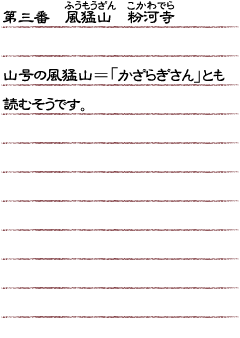 ふうもうざん　こかわでら
第三番　風猛山　粉河寺
山号の風猛山＝「かざらぎさん」とも
読むそうです。